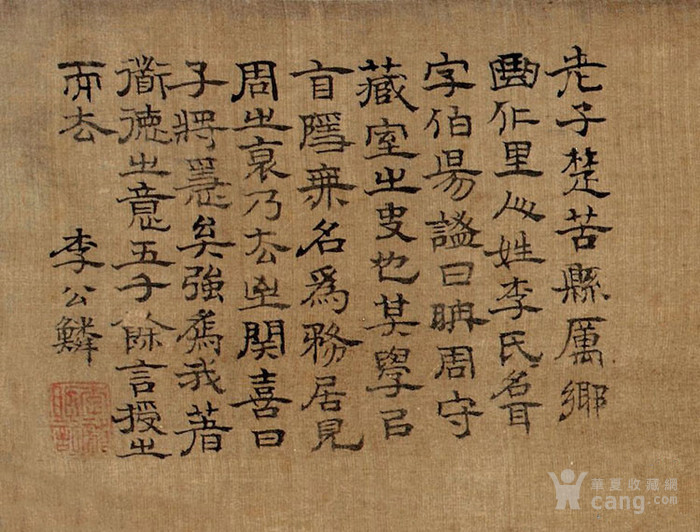 老子楚苦縣厲鄉
曲仁里人姓李氏名耳
字伯陽謚曰聃周守
藏室之史也其學以
自隱無名為務居見
周之衰乃去出関喜曰
子將隱矣強為我著
道德之意五千餘言授之
而去
李公麟
華夏收藏網
cang.com